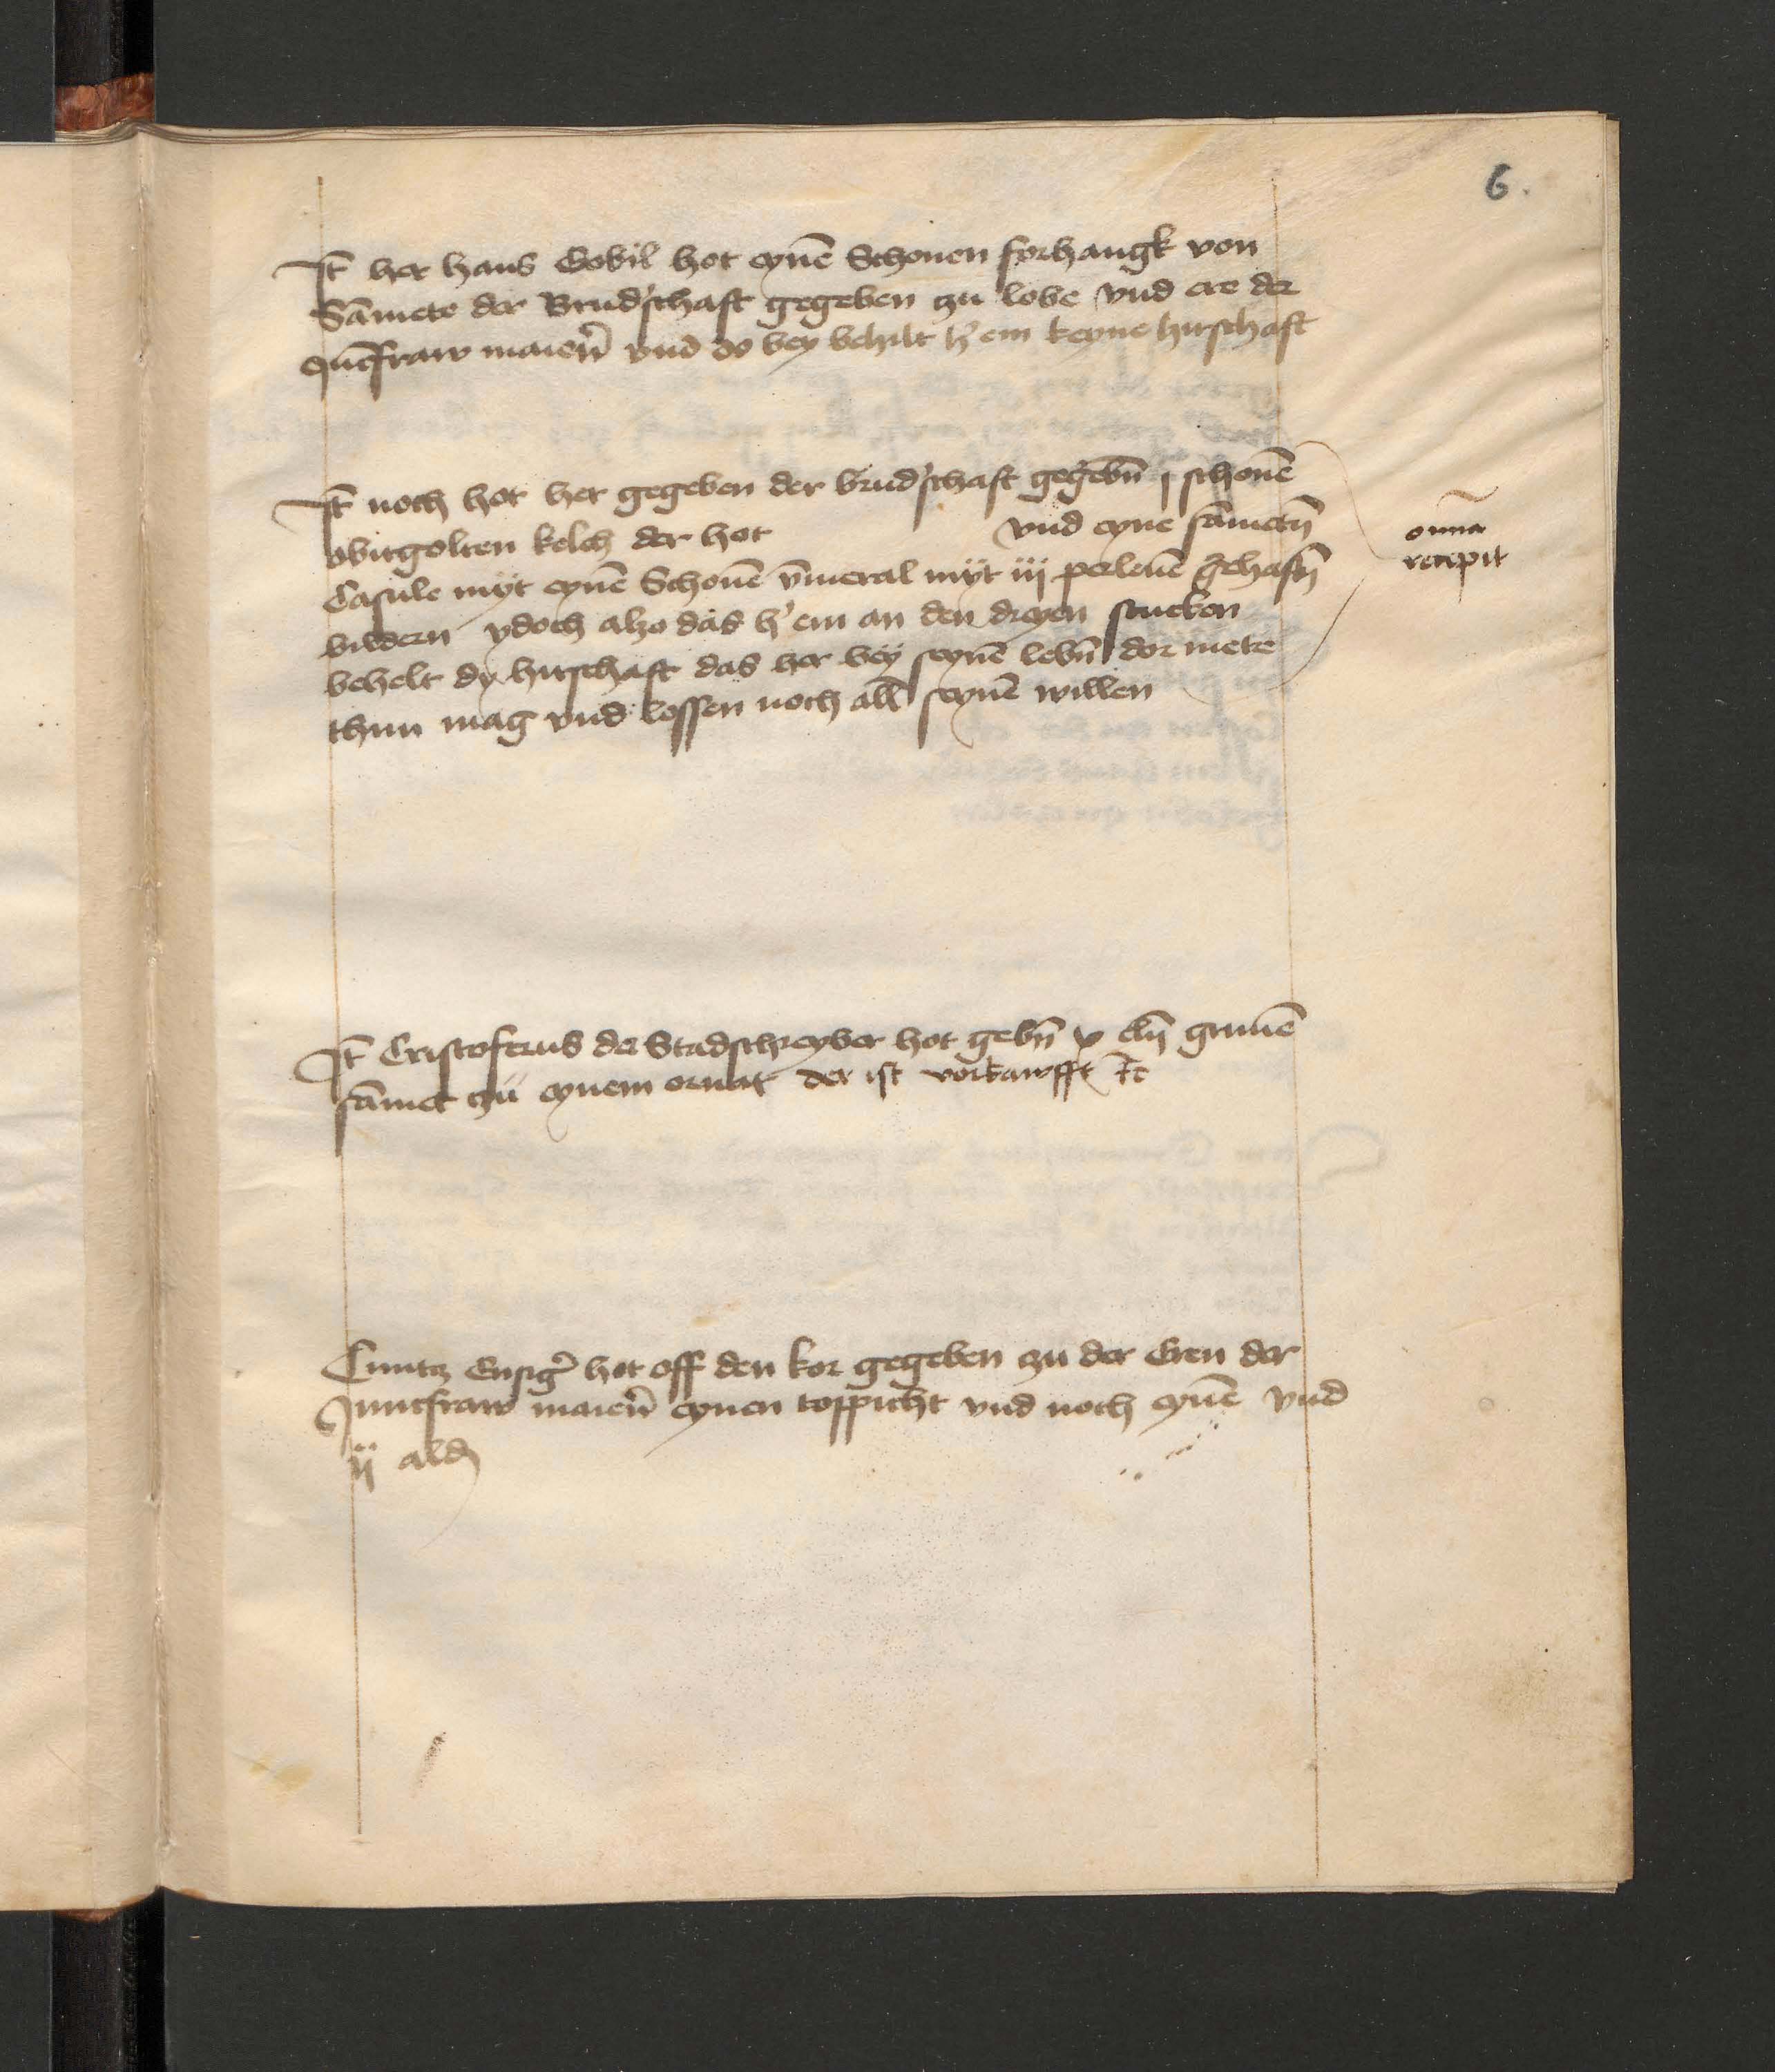 6.
It̄ her hans Gobil hot eynē Schonen forhangk von
Sāmete der Brud'schaft gegeben czu lobe vnd ere der
Jūcfraw marien̄ vnd do bey behilt h' em keyne hirschaft
It̄ noch hot her gegeben der brud'schaft gegebn̄ j schonē
obirgolten kelch der hot vnd eyne sāmetn̄
Casule myt eynē Schonē v̄meral myt iij perlenē gehaftn̄
bildern ydoch alzo das h' em an den dreyen stucken
behelt dy hirschaft das her bey seynē lebn̄ dor mete
thun mag vnd lossen noch all seynē willen
om̄ia
recepit
It̄ Cristoferus der Stadschreyber hot gebn̄ v eln̄ grunē
sāmet czu eynem ornat der ist vorkawfft
Cuntcz hot off den kor gegeben czu der Eren der
Juncfraw marien̄ eynen toppicht vnd noch eynē vnd
ij ald